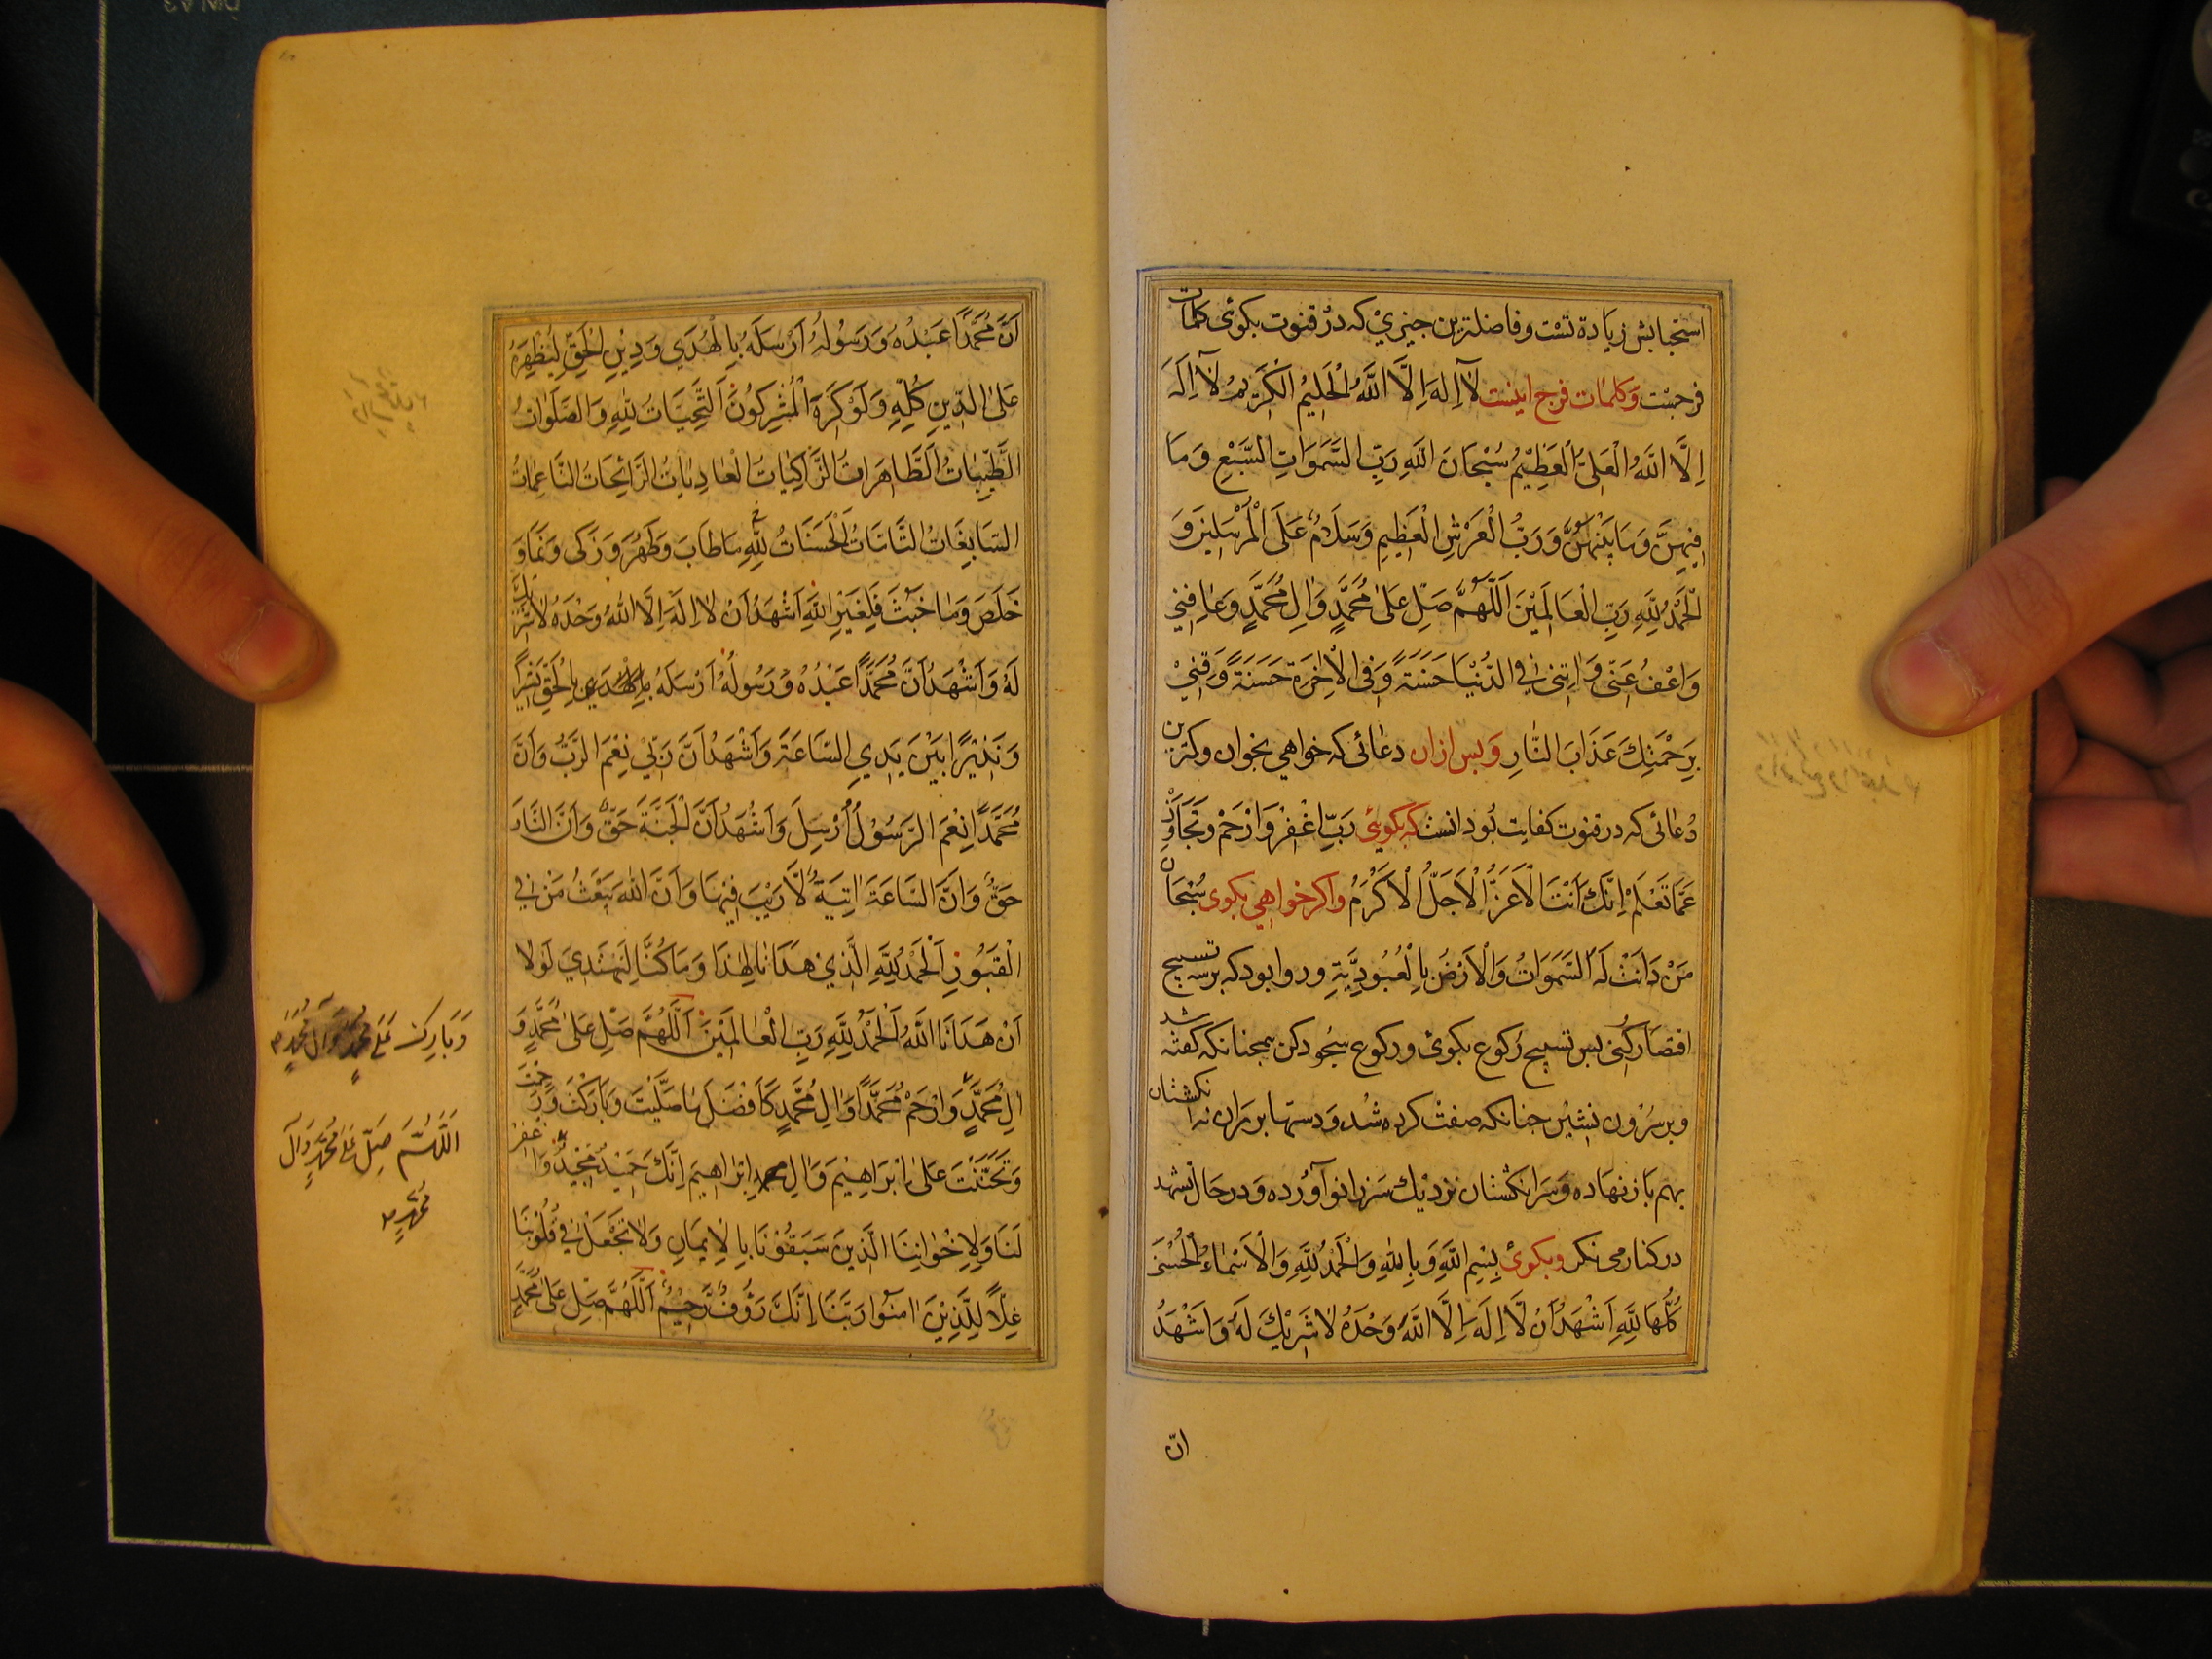 استحبابش زیادة تست و فاضلترین جیزیْ که دْر قنوت بکوئی کلمات
فرجست وَکلمات فرج اینست لَآ اِلهَ اِلَّا اللّٰهُ الْحَلِیْمُ الْکَرِیْمُ لَآ اِلَهَ
اِلَّا اللّٰهُ الْعَلِیُّ الْعَظِیْمُ سُبْحَانَ اللّٰهِ رَبِّ السَّمَوَاتِ السَّبْعِ وَمَا
فِیْهِنَّ وَمَا بَیْنَهُنَّ وَرَبُّ الْعَرْشِ الْعَظِیمِ وَسَلَامٌ عَلَی الْمُرْسَلِینَ وَ
الْحَمْدُ لِلّٰهِ رَبِّ الْعَالَمِیْنَ اَللّٰهُمَّ صَلِّ عَلیٰ مُحَمَّدٍ وَاٰلِ مُحَمَّدٍ وَعَافِنِی
وَاعْفُ عَنِّی وَاٰتِنِی فِی الدُّنْیَا حَسَنَةً وَفِی الْاٰخِرَةِ حَسَنَةً وَقِنِیْ
بِرَحْمَتِكَ عَذَابَ النَّارِ وَبس ازان دعائی که خواهی بخوان وکمترین
دُعائی که در قنوت کفایت بُود انست که بکوئی رَبِّ اغْفِرْ وَارْحَمْ وَتَجَاوَزْ
عَمَّا تَعْلَمُ اِنَّكَ اَنْتَ الْاَعَزُّ الْاَجَلُّ الْاَکْرَمُ واکر خواهی بکوی سُبْحَانَ
مَنْ دَانَتْ لَهُ السَّمَوَاتُ وَالْاَرْضُ بِالْعُبُودِیَّةِ وروا بود که بر سه تسبیح
اقتصار کُنی بس تسبیح رُکوع بکویْ ورکوع سُجود کن همجنانکه کفته شد
وبر سُرْون نشِیْن جنانکه صفت کرده شُد وَدستها بر رَان نه انکشتان
بهم باز نهاده وَسَر انکشتان نزدیْك سَر زانو آوُرده وَ در حَال تشهد
در کنار می نکر وبکویْ بِسْمِ اللّٰهِ وَبِاللّٰهِ وَالْحَمْدُ لِلّٰهِ وَالْاَسْمَاءُ الْحُسْنَی
کُلُّهَا لِلّٰهِ اَشْهَدُ اَنْ لَّا اِلَهَ اِلَّا اللّٰهُ وَحْدَهُ لَا شَرِیْكَ لَهُ وَاَشْهَدُ
انّ
اَنَّ مُحَمَّدًا عَبْدُهُ وَرَسُولُهُ اَرْسَلَهُ بِالْهُدَی وَدِیْنِ الْحَقِّ لِیُظْهِرَهُ
عَلَی الدِّینِ کُلِّهِ وَلَوْ کَرِهَ الْمُشْرِکُونَ اَلتَّحِیَّاتُ لِلّٰهِ وَالصَّلَوَاتُ
الطَّیِّبَاتُ الطَّاهِرَاتُ الزَّاکِیَاتُ الْغَادِیَاتُ الرَّائِحَاتُ النَّاعِمَاتُ
السَّابِغَاتُ التَّامَّاتُ الْحَسَنَاتُ لِلّٰهِ مَا طَابَ وَطَهُرَ وَزَکَی وَنَمَا وَ
خَلَصَ وَمَا خَبُثَ فَلِغَیْرِ اللّٰهِ اَشْهَدُ اَنْ لَا اِلَهَ اِلَّا اللّٰهُ وَحْدَهُ لَا شَرِیكَ
لَهُ وَاَشْهَدُ اَنَّ مُحَمَّدًا عَبْدُهُ وَرَسُولُهُ اَرْسَلَهُ بِالْهُدَی بِالْحَقِّ بَشِیرًا
وَنَذِیْرًا بَیْنَ یَدَیِ السَّاعَةِ وَاَشْهَدُ اَنَّ رَبِّیْ نِعْمَ الرَّبُّ وَاَنَّ
مُحَمَّدًا نِعْمَ الرَّسُوْلُ اُرْسِلَ وَاَشْهَدُ اَنَّ الْجَنَّةَ حَقٌّ وَاَنَّ النَّارَ
حَقٌّ وَاَنَّ السَّاعَةَ اٰتِیَةٌ لَّا رَیْبَ فِیْهَا وَاَنَّ اللّٰهَ یَبْعَثُ مَنْ فِی
الْقُبُوْرِ اَلْحَمْدُ لِلّٰهِ الَّذِیْ هَدَانَا لِهٰذَا وَمَا کُنَّا لِنَهْتَدِیَ لَوْلَا
اَنْ هَدَانَا اللّٰهُ اَلْحَمْدُ لِلّٰهِ رَبِّ الْعَالَمِیْنَ اَللّٰهُمَّ صَلِّ عَلیٰ مُحَمَّدٍ وَ
اٰلِ مُحَمَّدٍ وَارْحَمْ مُحَمَّدًا وَاٰلِ مُحَمَّدٍ کَاَفْضَلِ مَا صَلَّیْتَ وَبَارَکْتَ وَرَحِمْتَ
وَتَحَنَّنْتَ عَلیٰ اِبْرَاهِیْمَ وَاٰلِ اِبْرَاهِیمَ اِنَّكَ حَمِیْدٌ مَجِیْدٌ وَاغْفِرْ
لَنَا وَلِاِخْوَانِنَا الَّذِینَ سَبَقُوْنَا بِالْاِیمَانِ وَلَا تَجْعَلْ فِی قُلُوْبِنَا
غِلًّا لِلَّذِیْنَ اٰمَنُوا رَبَّنَا اِنَّكَ رَؤُفٌ رَحِیْمٌ اَللّٰهُمَّ صَلِّ عَلیٰ مُحَمَّدٍ
وَبَارِكْ عَلَی مُحَمَّدٍ وَآلِ مُحَمَّدٍ
اَللّٰهُمَّ صَلِّ عَلَی مُحَمَّدٍ وَآلِ
مُحَمَّدٍ